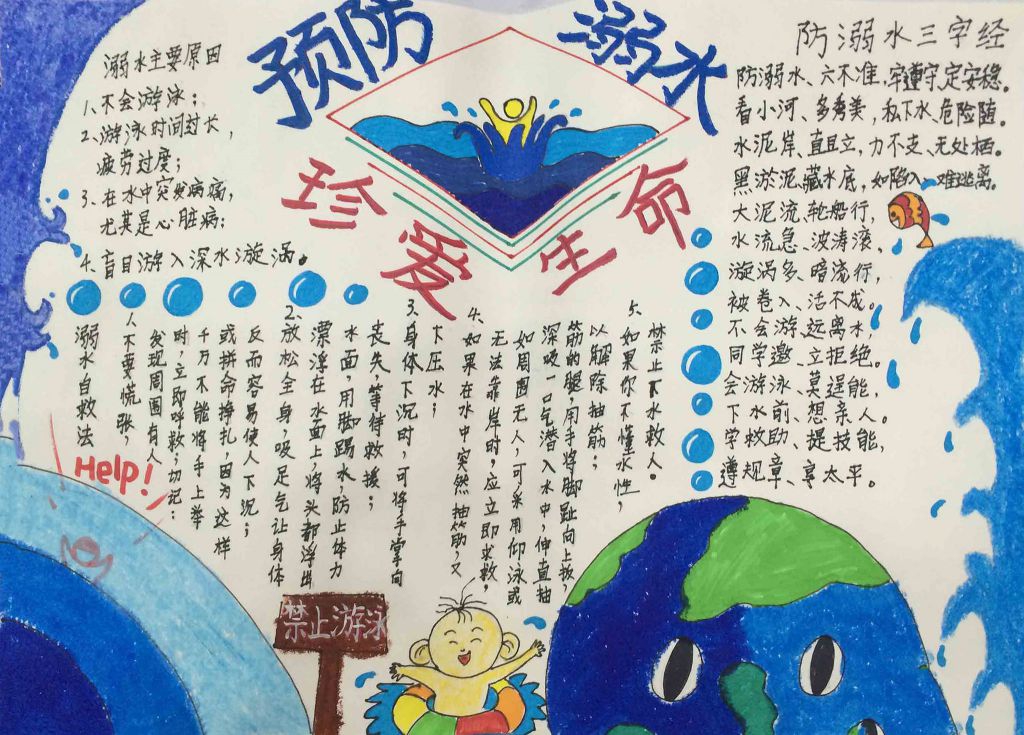 预防溺水
珍爱生命
溺水主要原因
1、不会游泳；
2、游泳时间过长，
疲劳过度；
3、在水中突发病痛，
尤其是心脏病；
4、盲目游入深水漩涡。
防溺水三字经
防溺水、六不准，牢遵守、定安稳。
看小河、多秀美，私下水、危险随。
水泥岸、直且立，力不支、无处栖。
黑淤泥、藏水底，如陷入、难逃离。
大泥流、轮船行，
水流急、波涛滚，
漩涡多、暗流行，
被卷入、活不成。
不会游、远离水，
同学邀、立拒绝。
会游泳、莫逞能，
下水前、想亲人。
学救助、提技能，
遵规章、享太平。
溺水自救法
1、不要慌张，
发现周围有人
时，立即呼救，切记：
千万不能将手上举
或拼命挣扎，因为这样
反而容易使人下沉；
2、放松全身，吸足气让身体
漂浮在水面上，将头部浮出
水面，用脚踢水，防止体力
丧失，等待救援；
3、身体下沉时，可将手掌向
下压水；
4、如果在水中突然抽筋，又
无法靠岸时，应立即求救，
如周围无人，可采用仰泳或
深吸一口气潜入水中，伸直抽
筋的腿，用手将脚趾向上扳，
以解除抽筋；
5、如果你不懂水性，
禁止下水救人。
Help!
禁止游泳